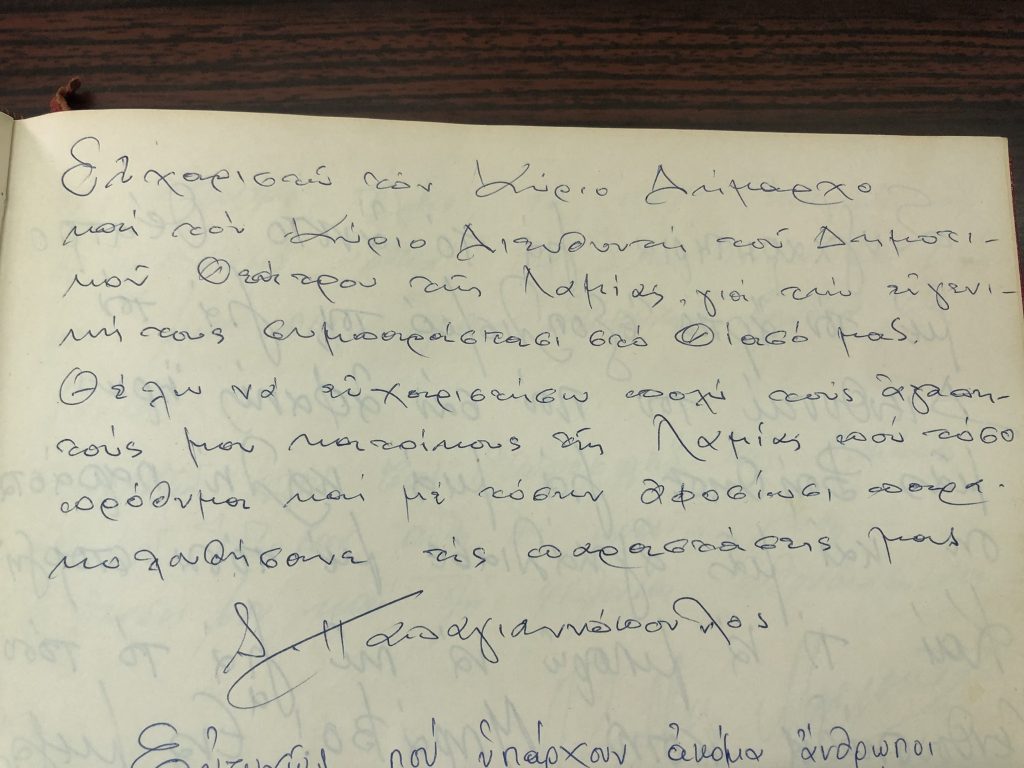 Εὐχαριστῶ τὸν Κύριο Δήμαρχο
καὶ τὸν Κύριο Διευθυντὴ τοῦ Δημοτι-
κοῦ Θεάτρου τῆς Λαμίας, γιὰ τὴν εὐγενι-
κή τους συμπαράστασι στὸ Θίασό μας.
Θέλω νὰ εὐχαριστήσω πολὺ τοὺς ἀγαπη-
τούς μου κατοίκους τῆς Λαμίας ποὺ τόσο
πρόθυμα καὶ μὲ τόσην ἀφοσίωσι παρα-
κολουθήσανε τὶς παραστάσεις μας
Δ. Παπαγιαννόπουλος
Εὐτυχῶς ποὺ ὑπάρχουν ἀκόμα ἄνθρωποι